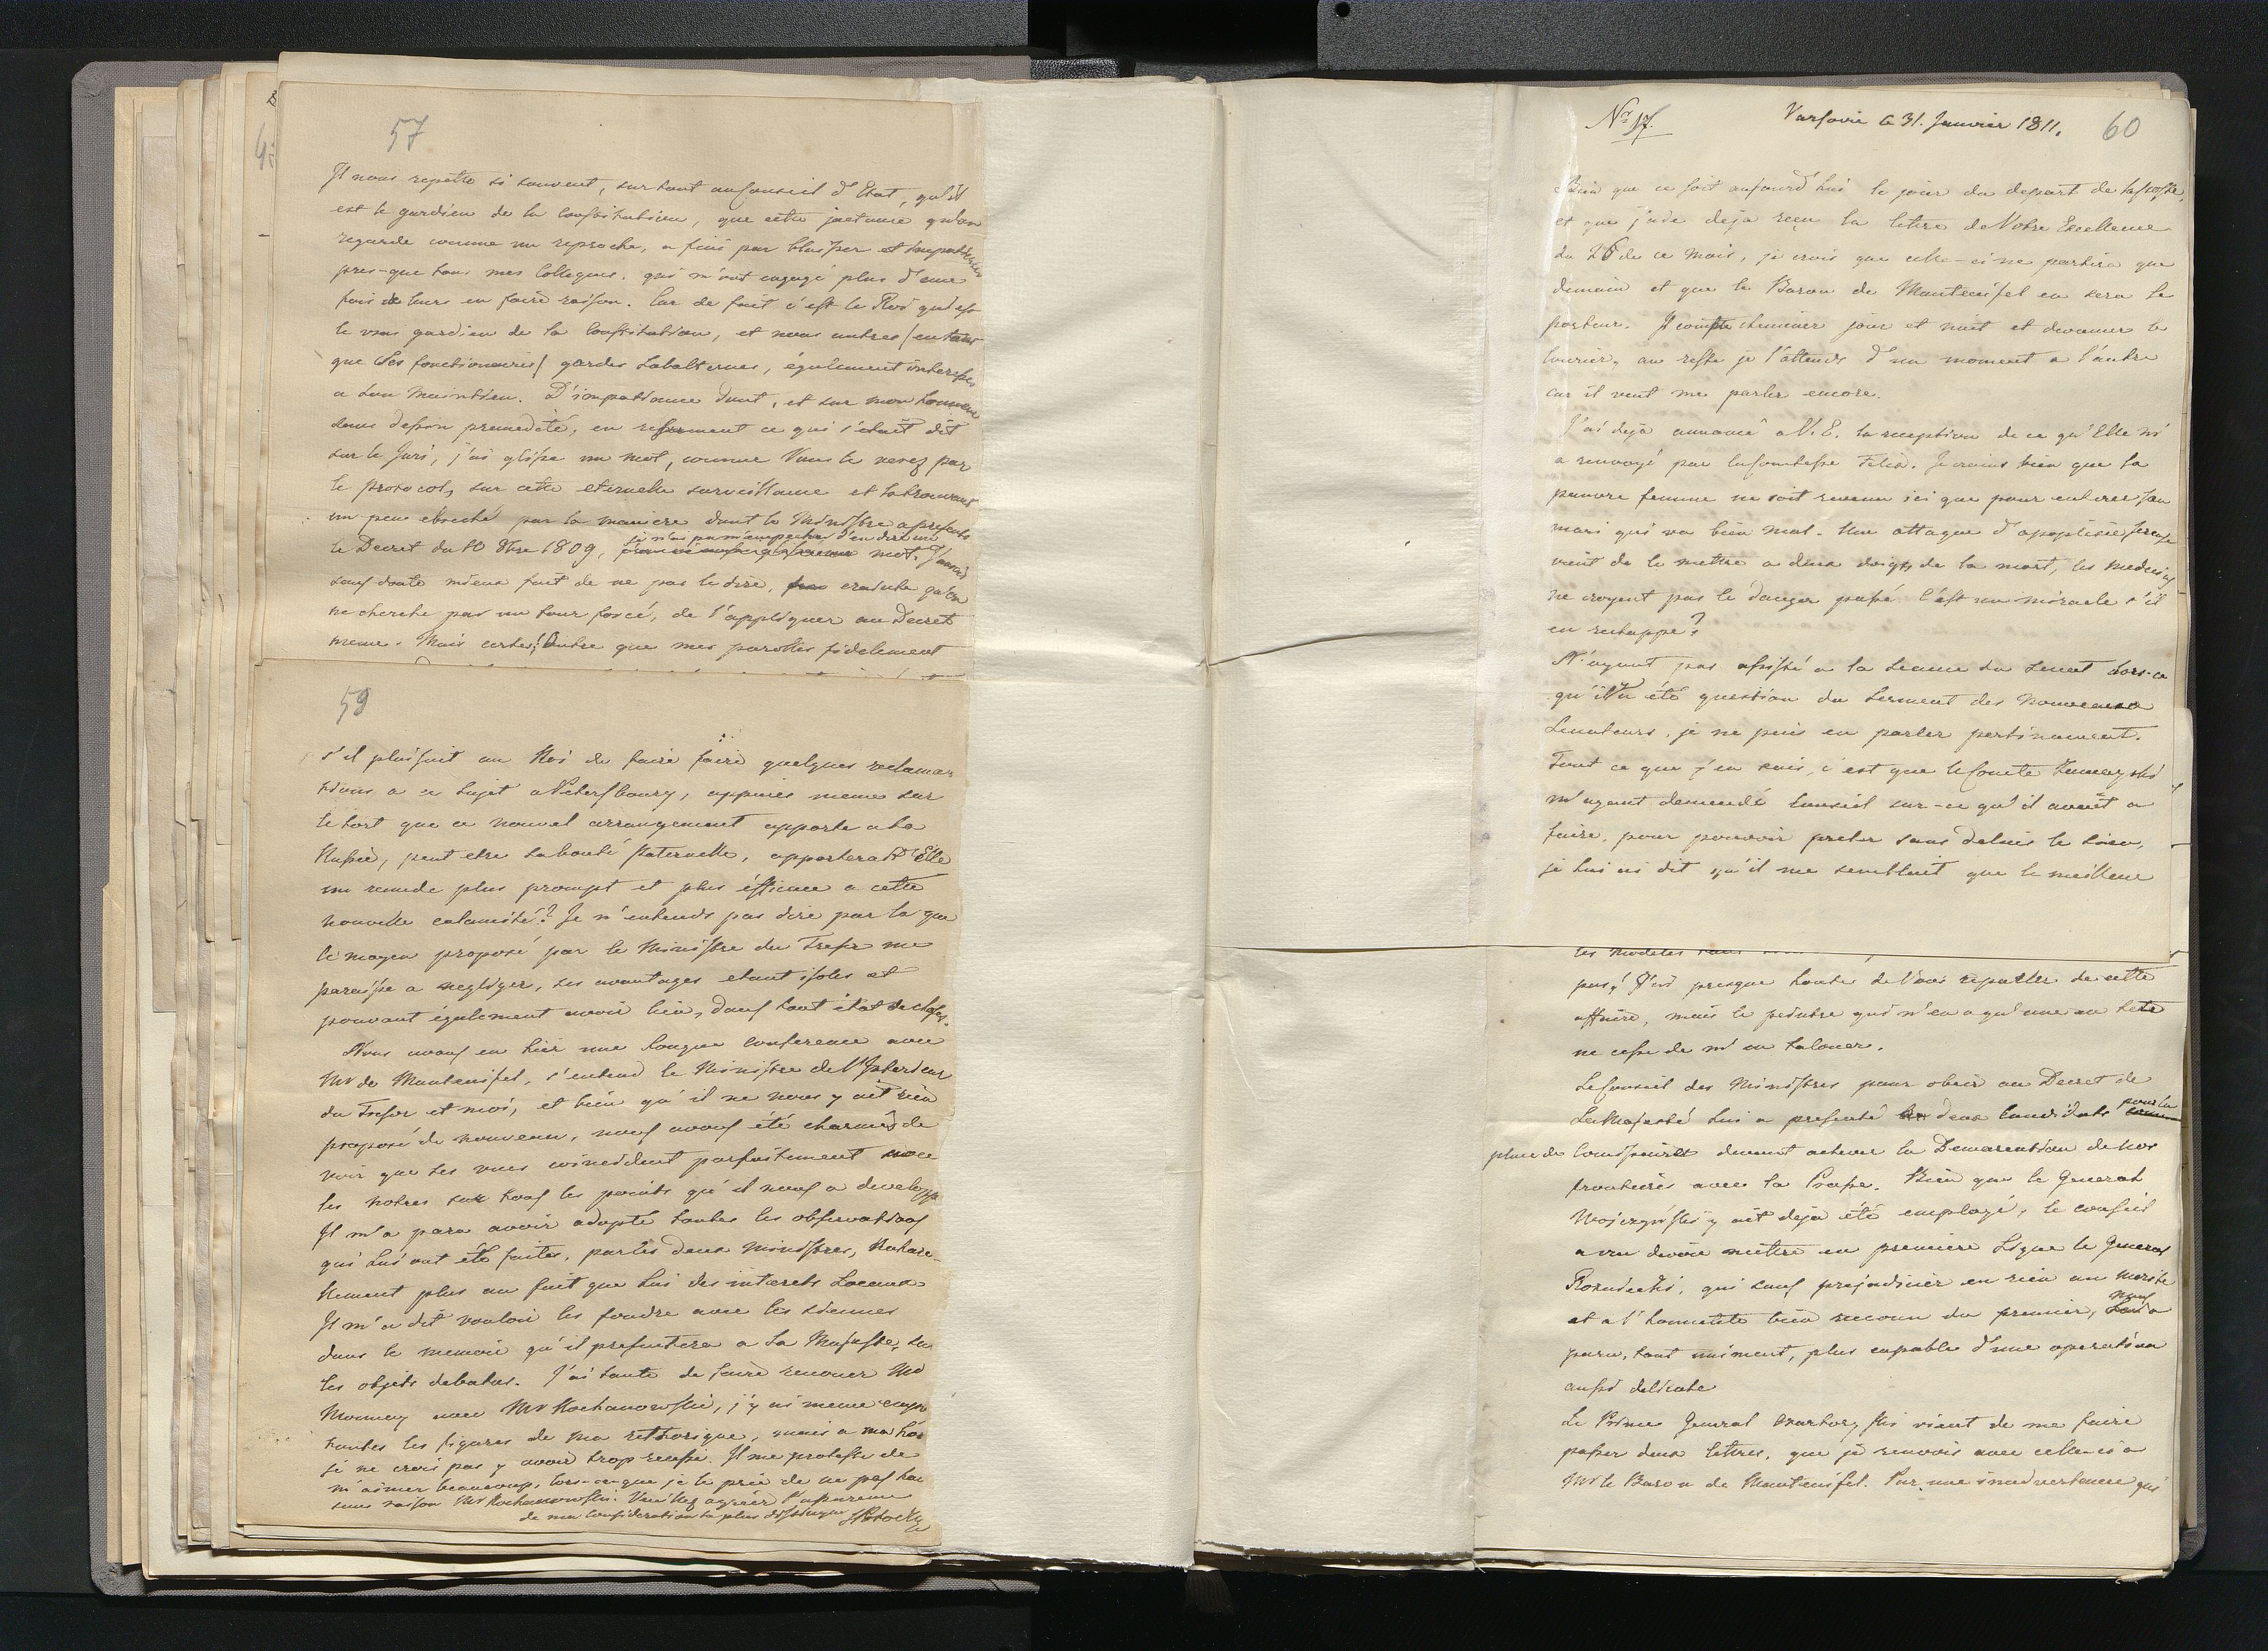 57
Il nous repette si souvent, surtout au Conseil d'Etat, qu'il
est le gardien de la Constitution, que cette jactance qu'on
regarde comme un reproche, a fini par blesser et impatienter
pres-que tous mes Collegues, qui m'ont engagé plus d'une
fois de leurs en faire raison. Car de fait c'est le Roi qui est
le vrai gardien de la Constitution, et nous autres (en tant
que Ses fonctionaires) gardes subalternes, également interessés
a son maintien. D'impatience dont, et sur mon honneur
sans dessein premedité, en resumant ce qui s'etait dit
sur le Juri, j'ai glissé un mot, comme Vous le verez par
le protocol, sur cette eternelle surveillance et la trouvant
un peu ébreché par la maniere dont le Ministre a presenté
je n'ai pu m'empecher d'en dire un
le Decret du 10 8bre 1809, mot. J'aurais
sans doute mieux fait de ne pas le dire, crainte qu'on
ne cherche par un tour forcé, de l'appliquer au Decret
meme. Mais certes! Outre que mes parolles fidelement
59
s'il plaisait au Roi de faire faire quelques reclama-
tions a ce sujet a Petersbourg, appuiés meme sur
le tort que ce nouvel arrangement apporte a la
Russie, peut etre sa bonté paternelle, apporterait Elle
un remede plus prompt et plus éfficace a cette
nouvelle calamité? Je n'entends pas dire par la que
le moyen proposé par le Ministre du Tresor me
paraisse a negliger, ses avantages etant isolés et
pouvant également avoir lieu, dans tout état de choses.
Nous avons eu hier une longue conference avec
Mr de Manteuffel, s'entend le Ministre de l'Interieur
du Tresor et moi, et bien qu'il ne nous y ait rien
proposé de nouveau, nous avons été charmés de
voir que ses vues coincident parfaitement avec
les notres sur tous les points qu'il nous a developpé
Il m'a paru avoir adopté toutes les observations
qui Lui ont été faites, par les deux Ministres, Naturel-
lement plus au fait que Lui des interets Locaux
Il m'a dit vouloir les fondre avec les siennes
dans le memoire qu'il presentera a Sa Majesté, sur
les objets debatus. J'ai tanté de faire renouer Mr
Mounay avec Mr Kochanowski, j'y ai meme employé
toutes les figures de ma rethorique, mais a ma honte
je ne crois pas y avoir trop reussi. Il me proteste de
m'aimer beaucoup, lors-ce-que je le prie de ne pas haïr
sans raison Mr Kochanowski. Veuillez agréer l'assurance
de ma Consideration la plus distinguée
Nr 17.
Varsovie le 31. Janvier 1811.
60
Bien que ce soit aujourd'hui le jour du depart de la poste,
et que j'aie deja reçu la lettre de Votre Excellence
du 26 de ce Mois, je crois que celle-ci ne partira que
demain et que le Baron de Manteuffel en sera le
porteur. Il compte cheminer jour et nuit et devancer le
Courier, au reste je l'attends d'un moment a l'autre
car il veut me parler encore.
J'ai deja annoncé a V.E. la reception de ce qu'Elle m'
a renvoyé par la Comtesse Felix. Je crains bien que la
pauvre femme ne soit revenue ici que pour enterrer son
mari qui va bien mal. Une attaque d'apoplexie
vient de le mettre a deux doigts de la mort, les medecins
ne croyent pas le danger passé. C'est un miracle s'il
en rechappe?
N'ayant pas assisté a la seance du Senat lors-ce
qu'il y a été question du serment des Nouveaux
Senateurs, je ne puis en parler pertinamment.
Tout ce que j'en sais, c'est que le Comte Zamoyski
m'ayant demandé Conseil sur-ce qu'il avait a
faire, pour pouvoir preter sans delais le sien,
je lui ai dit qu'il me semblait que le meilleur
les modeles
pas? J'ai presque honte de Vous reparler de cette
affaire, mais le peintre qui n'en a qu'une en tete
ne cesse de m'en taloner.
Le Conseil des Ministres pour obeir au Decret de
Sa Majesté Lui a presenté deux Candidats pour la
place de Comissaires devant achever la Demarcation de nos
frontieres avec la Prusse. Bien que le General
Woiczynski y ait deja été employé, le conseil
a cru devoir mettre en premiere Ligne le General
Rozniecki, qui sans prejudicier en rien au merite
et a l'honneteté bien reconu du premier, nous a
paru, tout uniment, plus capable d'une operation
aussi delicate
Le Prince General Czartoryski vient de me faire
passer deux lettres, que je renvois avec celle-ci a
Mr le Baron de Manteuffel. Par une inadvertence qui